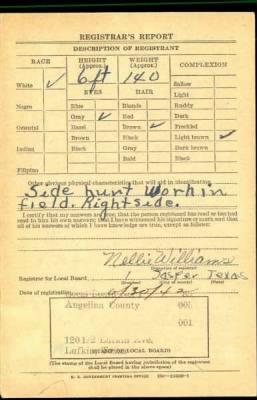 REGISTRAR'S REPORT
DESCRIPTION OF REGISTRANT
RACE HEIGHT (Approx.) WEIGHT (Approx.) COMPLEXION
6 ft 140
White ✓ Sallow
EYES HAIR Light
Negro Blue Blonde Ruddy
Gray ✓ Red Dark
Oriental Hazel Brown ✓ Freckled
Brown Black Light brown ✓
Indian Black Gray Dark brown
Bald Black
Filipino
Other obvious physical characteristics that will aid in identification
Side hurt work in
field. Right side.
I certify that my answers are true; that the person registered has read or has had
read to him his own answers; that I have witnessed his signature or mark and that
all of his answers of which I have knowledge are true, except as follows:
Nellie Williams
(Signature of registrar)
Registrar for Local Board 1 Jasper Texas
(Number) (City or county) (State)
Date of registration 6/30/42
Angelina County 005
001
Lufkin,
(STAMP OF LOCAL BOARD)
(The stamp of the Local Board having jurisdiction of the registrant
shall be placed in the above space.)
U. S. GOVERNMENT PRINTING OFFICE